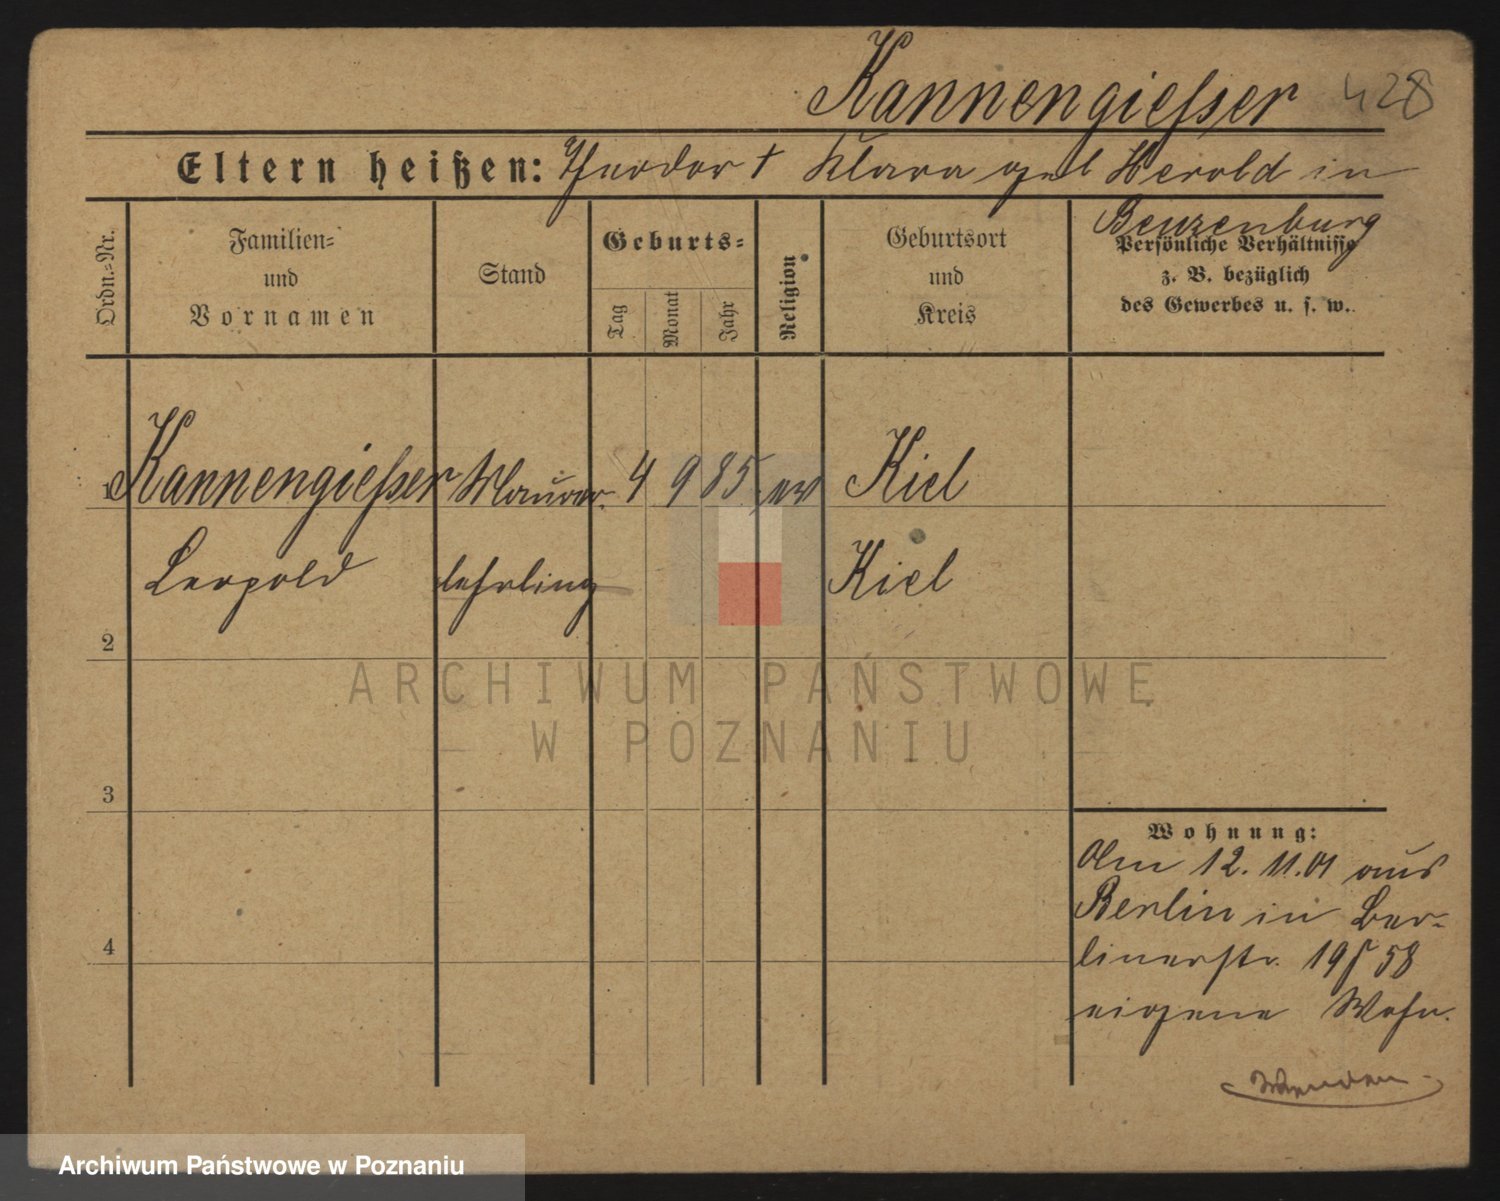 Kannengiesser 428
Eltern heißen: Theodor † Klara geb Herold in
Benzenburg
Ordn.-Nr.
Familien-
und
Vornamen
Stand
Geburts-
Tag
Monat
Jahr
Religion
Geburtsort
und
Kreis
Persönliche Verhältnisse
z. B. bezüglich
des Gewerbes u. s. w.
1 Kannengiesser Maurer- 4 9 85 ev Kiel
Leopold lehrling Kiel
2
3
4
Wohnung:
Am 12. 11. 01 aus
Berlin in Ber-
linerstr. 19 58
eigene Wohn.
ARCHIWUM PAŃSTWOWE
W POZNANIU
Archiwum Państwowe w Poznaniu